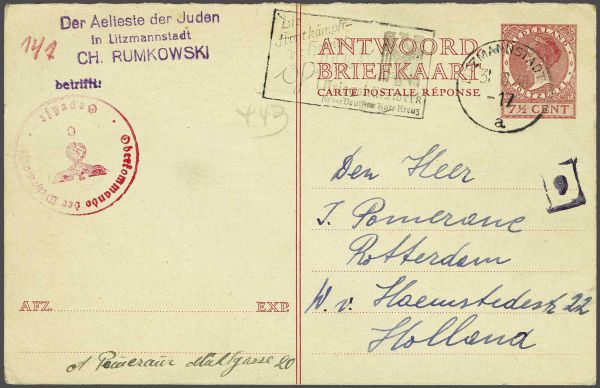 Der Aelteste der Juden
in Litzmannstadt
CH. RUMKOWSKI
betrifft:
14/1
Geprüft
Oberkommando der Wehrmacht
443
Die
Frontkämpfer
Deutsche Rote Kreuz
ANTWOORD
BRIEFKAART
CARTE POSTALE RÉPONSE
NEDERLAND
7½ CENT
LITZMANNSTADT
31
-17
a
9
Den Heer
I. Pomeranc
Rotterdam
W. v. Haemstedestr 22
Holland
AFZ. EXP.
A Pomeranc Mühlgasse 20